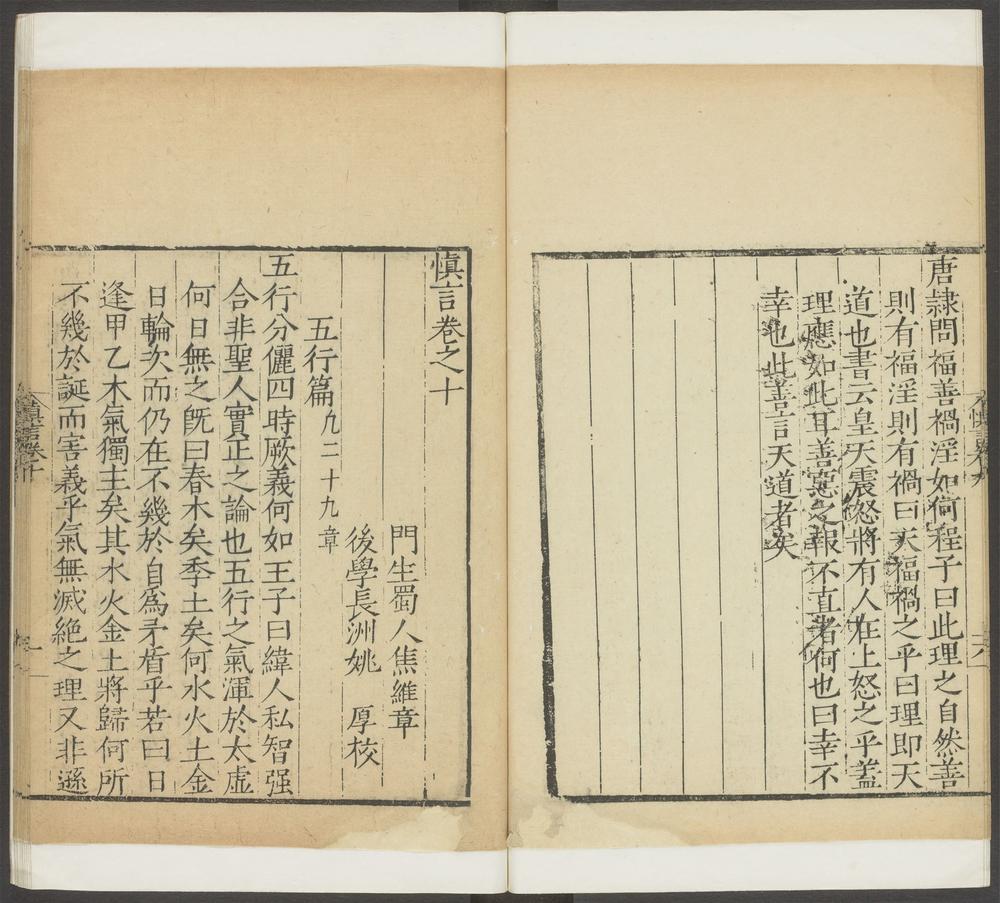 唐隷問福善禍淫如何程子曰此理之自然善
則有福淫則有禍曰天福禍之乎曰理即天
道也書云皇天震怒將有人在上怒之乎蓋
理應如此耳善惡之報不直者何也曰幸不
幸也此善言天道者矣
慎言卷之十
門生蜀人焦維章
後學長洲姚　厚校
五行篇凡二十九章
五行分儷四時厥義何如王子曰緯人私智强
合非聖人實正之論也五行之氣渾於太虛
何日無之旣曰春木矣季土矣何水火土金
日輪次而仍在不幾於自爲矛盾乎若曰日
逢甲乙木氣獨主矣其水火金土將歸何所
不幾於誕而害義乎氣無滅絶之理又非遜
慎言卷十
一